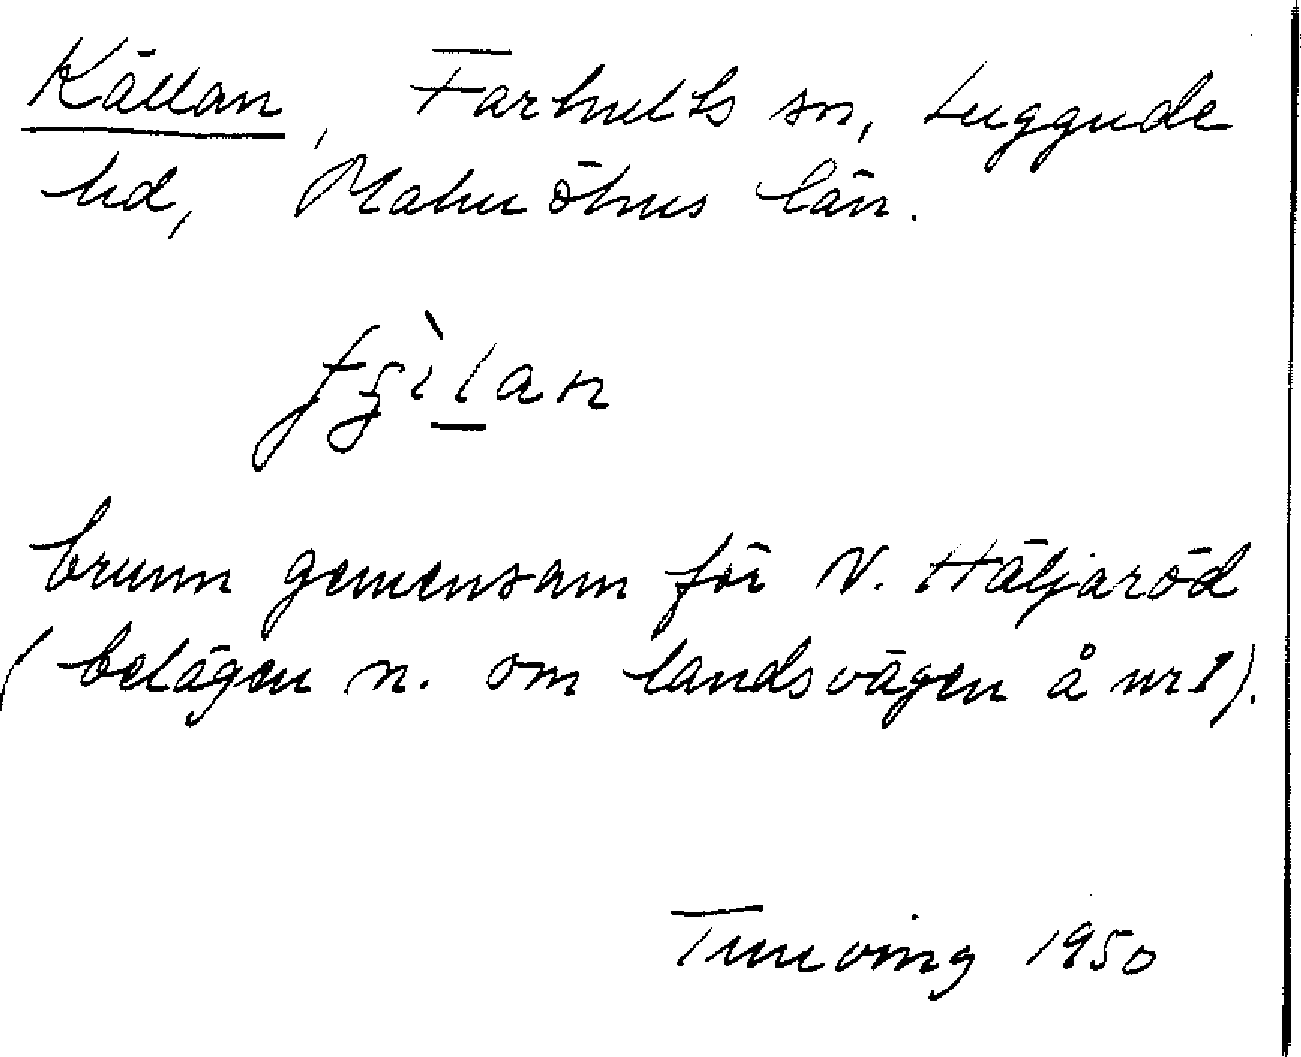 Källan, Farhults sn, Luggude
hd, Malmöhus län.
brunn gemensam för N. Häljaröd
(belägen n. om landsvägen å nr 1).
Tuneving 1950